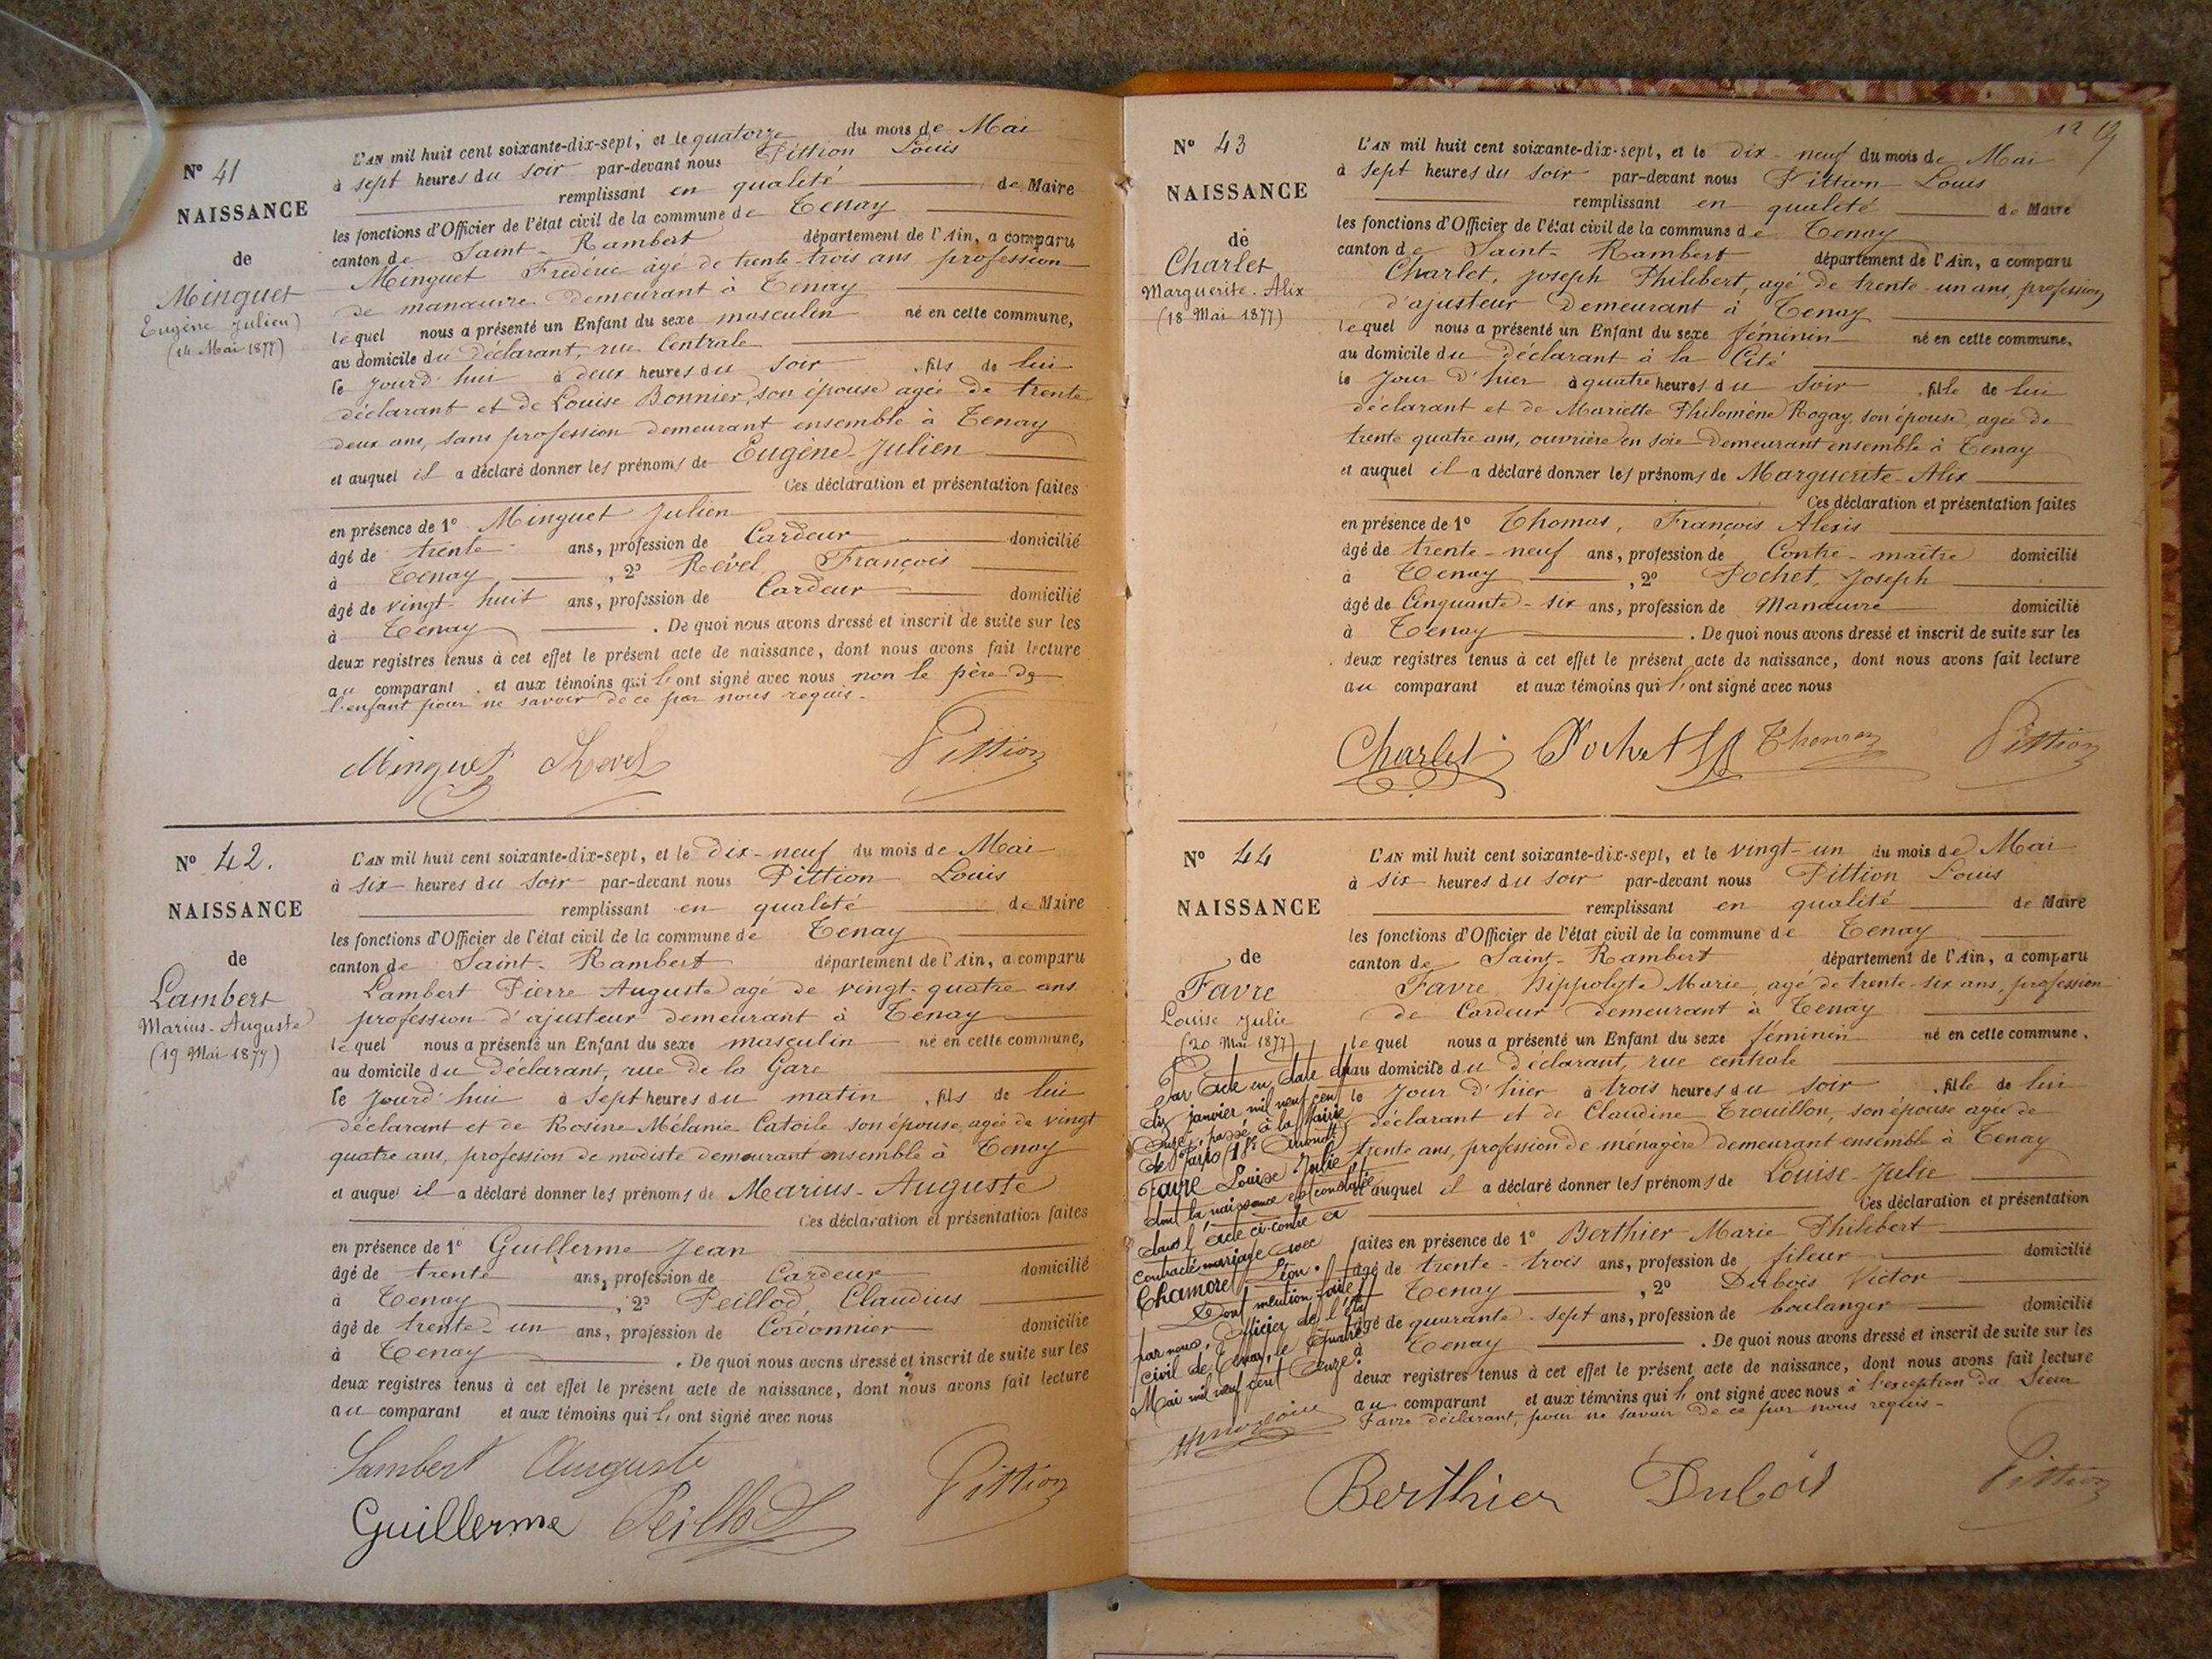 N° 41
NAISSANCE
de
Minguet
Eugène Julien
(14 Mai 1877)
L'AN mil huit cent soixante-dix-sept, et le quatorze du mois de Mai
à sept heures du soir par-devant nous Pittion Louis
remplissant en qualité de Maire
les fonctions d'Officier de l'état civil de la commune de Tenay
canton de Saint-Rambert département de l'Ain, a comparu
Minguet Frédéric âgé de trente-trois ans profession
de manœuvre demeurant à Tenay
lequel nous a présenté un Enfant du sexe masculin né en cette commune,
au domicile du déclarant, rue Centrale
le jourd'hui à deux heures du soir, fils de lui
déclarant et de Louise Bonnier, son épouse agée de trente
deux ans, sans profession demeurant ensemble à Tenay
et auquel il a déclaré donner les prénoms de Eugène-Julien
Ces déclaration et présentation faites
en présence de 1° Minguet Julien
âgé de trente ans, profession de Cardeur domicilié
à Tenay, 2° Revel François
âgé de vingt-huit ans, profession de Cardeur domicilié
à Tenay. De quoi nous avons dressé et inscrit de suite sur les
deux registres tenus à cet effet le présent acte de naissance, dont nous avons fait lecture
au comparant et aux témoins qui l'ont signé avec nous non le père de
l'enfant pour ne savoir de ce par nous requis.
Minguet Revel Pittion
N° 42.
NAISSANCE
de
Lambert
Marius-Auguste
(19 Mai 1877)
L'AN mil huit cent soixante-dix-sept, et le dix-neuf du mois de Mai
à six heures du soir par-devant nous Pittion Louis
remplissant en qualité de Maire
les fonctions d'Officier de l'état civil de la commune de Tenay
canton de Saint-Rambert département de l'Ain, a comparu
Lambert Pierre Auguste agé de vingt-quatre ans
profession d'ajusteur demeurant à Tenay
lequel nous a présenté un Enfant du sexe masculin né en cette commune,
au domicile du déclarant, rue de la Gare
le jourd'hui à sept heures du matin, fils de lui
déclarant et de Rosine Mélanie Catoile son épouse, agée de vingt
quatre ans, profession de modiste demeurant ensemble à Tenay
et auquel il a déclaré donner les prénoms de Marius-Auguste
Ces déclaration et présentation faites
en présence de 1° Guillerme Jean
âgé de trente ans, profession de Cardeur domicilié
à Tenay, 2° Peillod, Claudius
âgé de trente-un ans, profession de Cordonnier domicilié
à Tenay. De quoi nous avons dressé et inscrit de suite sur les
deux registres tenus à cet effet le présent acte de naissance, dont nous avons fait lecture
au comparant et aux témoins qui l'ont signé avec nous
Lambert Auguste
Guillerme Peillod Pittion
19
N° 43
NAISSANCE
de
Charlet
Marguerite-Alix
(18 Mai 1877)
L'AN mil huit cent soixante-dix-sept, et le dix-neuf du mois de Mai
à sept heures du soir par-devant nous Pittion Louis
remplissant en qualité de Maire
les fonctions d'Officier de l'état civil de la commune de Tenay
canton de Saint-Rambert département de l'Ain, a comparu
Charlet, Joseph Philibert, agé de trente-un ans, profession
d'ajusteur demeurant à Tenay
lequel nous a présenté un Enfant du sexe féminin né en cette commune,
au domicile du déclarant à la Cité
le jour d'hier à quatre heures du soir, fille de lui
déclarant et de Mariette Philomène Rogay, son épouse, agée de
trente quatre ans, ouvrière en soie demeurant ensemble à Tenay
et auquel il a déclaré donner les prénoms de Marguerite-Alix
Ces déclaration et présentation faites
en présence de 1° Thomas, François Alexis
âgé de trente-neuf ans, profession de Contre-maître domicilié
à Tenay, 2° Pochet, Joseph
âgé de Cinquante-six ans, profession de Manœuvre domicilié
à Tenay. De quoi nous avons dressé et inscrit de suite sur les
deux registres tenus à cet effet le présent acte de naissance, dont nous avons fait lecture
au comparant et aux témoins qui l'ont signé avec nous
Charlet Pochet Thomas Pittion
N° 44
NAISSANCE
de
Favre
Louise Julie
(20 Mai 1877)
Par acte en date du
dix janvier mil neuf cent
onze, passé à la Mairie
de Paris (18e arrondt)
Favre Louise Julie
dont la naissance est constatée
dans l'acte ci-contre a
contracté mariage avec
Chamorel, Léon.
Dont mention faite
par nous, Officier de l'état
civil de Tenay, le quatre
Mai mil neuf cent onze.
L'AN mil huit cent soixante-dix-sept, et le vingt-un du mois de Mai
à six heures du soir par-devant nous Pittion Louis
remplissant en qualité de Maire
les fonctions d'Officier de l'état civil de la commune de Tenay
canton de Saint-Rambert département de l'Ain, a comparu
Favre, Hippolyte Marie, agé de trente-six ans, profession
de Cardeur demeurant à Tenay
lequel nous a présenté un Enfant du sexe féminin né en cette commune,
au domicile du déclarant, rue centrale
le jour d'hier à trois heures du soir, fille de lui
déclarant et de Claudine Trouillon, son épouse agée de
trente ans, profession de ménagère demeurant ensemble à Tenay
et auquel il a déclaré donner les prénoms de Louise-Julie
Ces déclaration et présentation
faites en présence de 1° Berthier Marie Philibert
âgé de trente-trois ans, profession de fileur domicilié
à Tenay, 2° Dubois Victor
âgé de quarante-sept ans, profession de boulanger domicilié
à Tenay. De quoi nous avons dressé et inscrit de suite sur les
deux registres tenus à cet effet le présent acte de naissance, dont nous avons fait lecture
au comparant et aux témoins qui l'ont signé avec nous à l'exception du Sieur
Favre déclarant, pour ne savoir de ce par nous requis.
Berthier Dubois Pittion